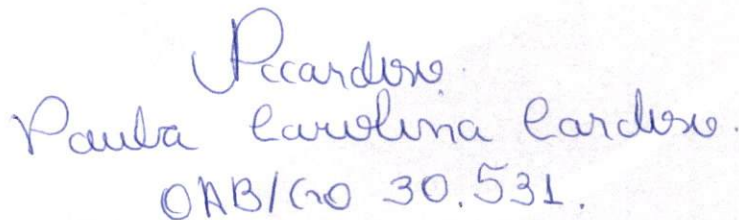 Pccardoso.
Paula Carolina Cardoso.
OAB/GO 30.531.